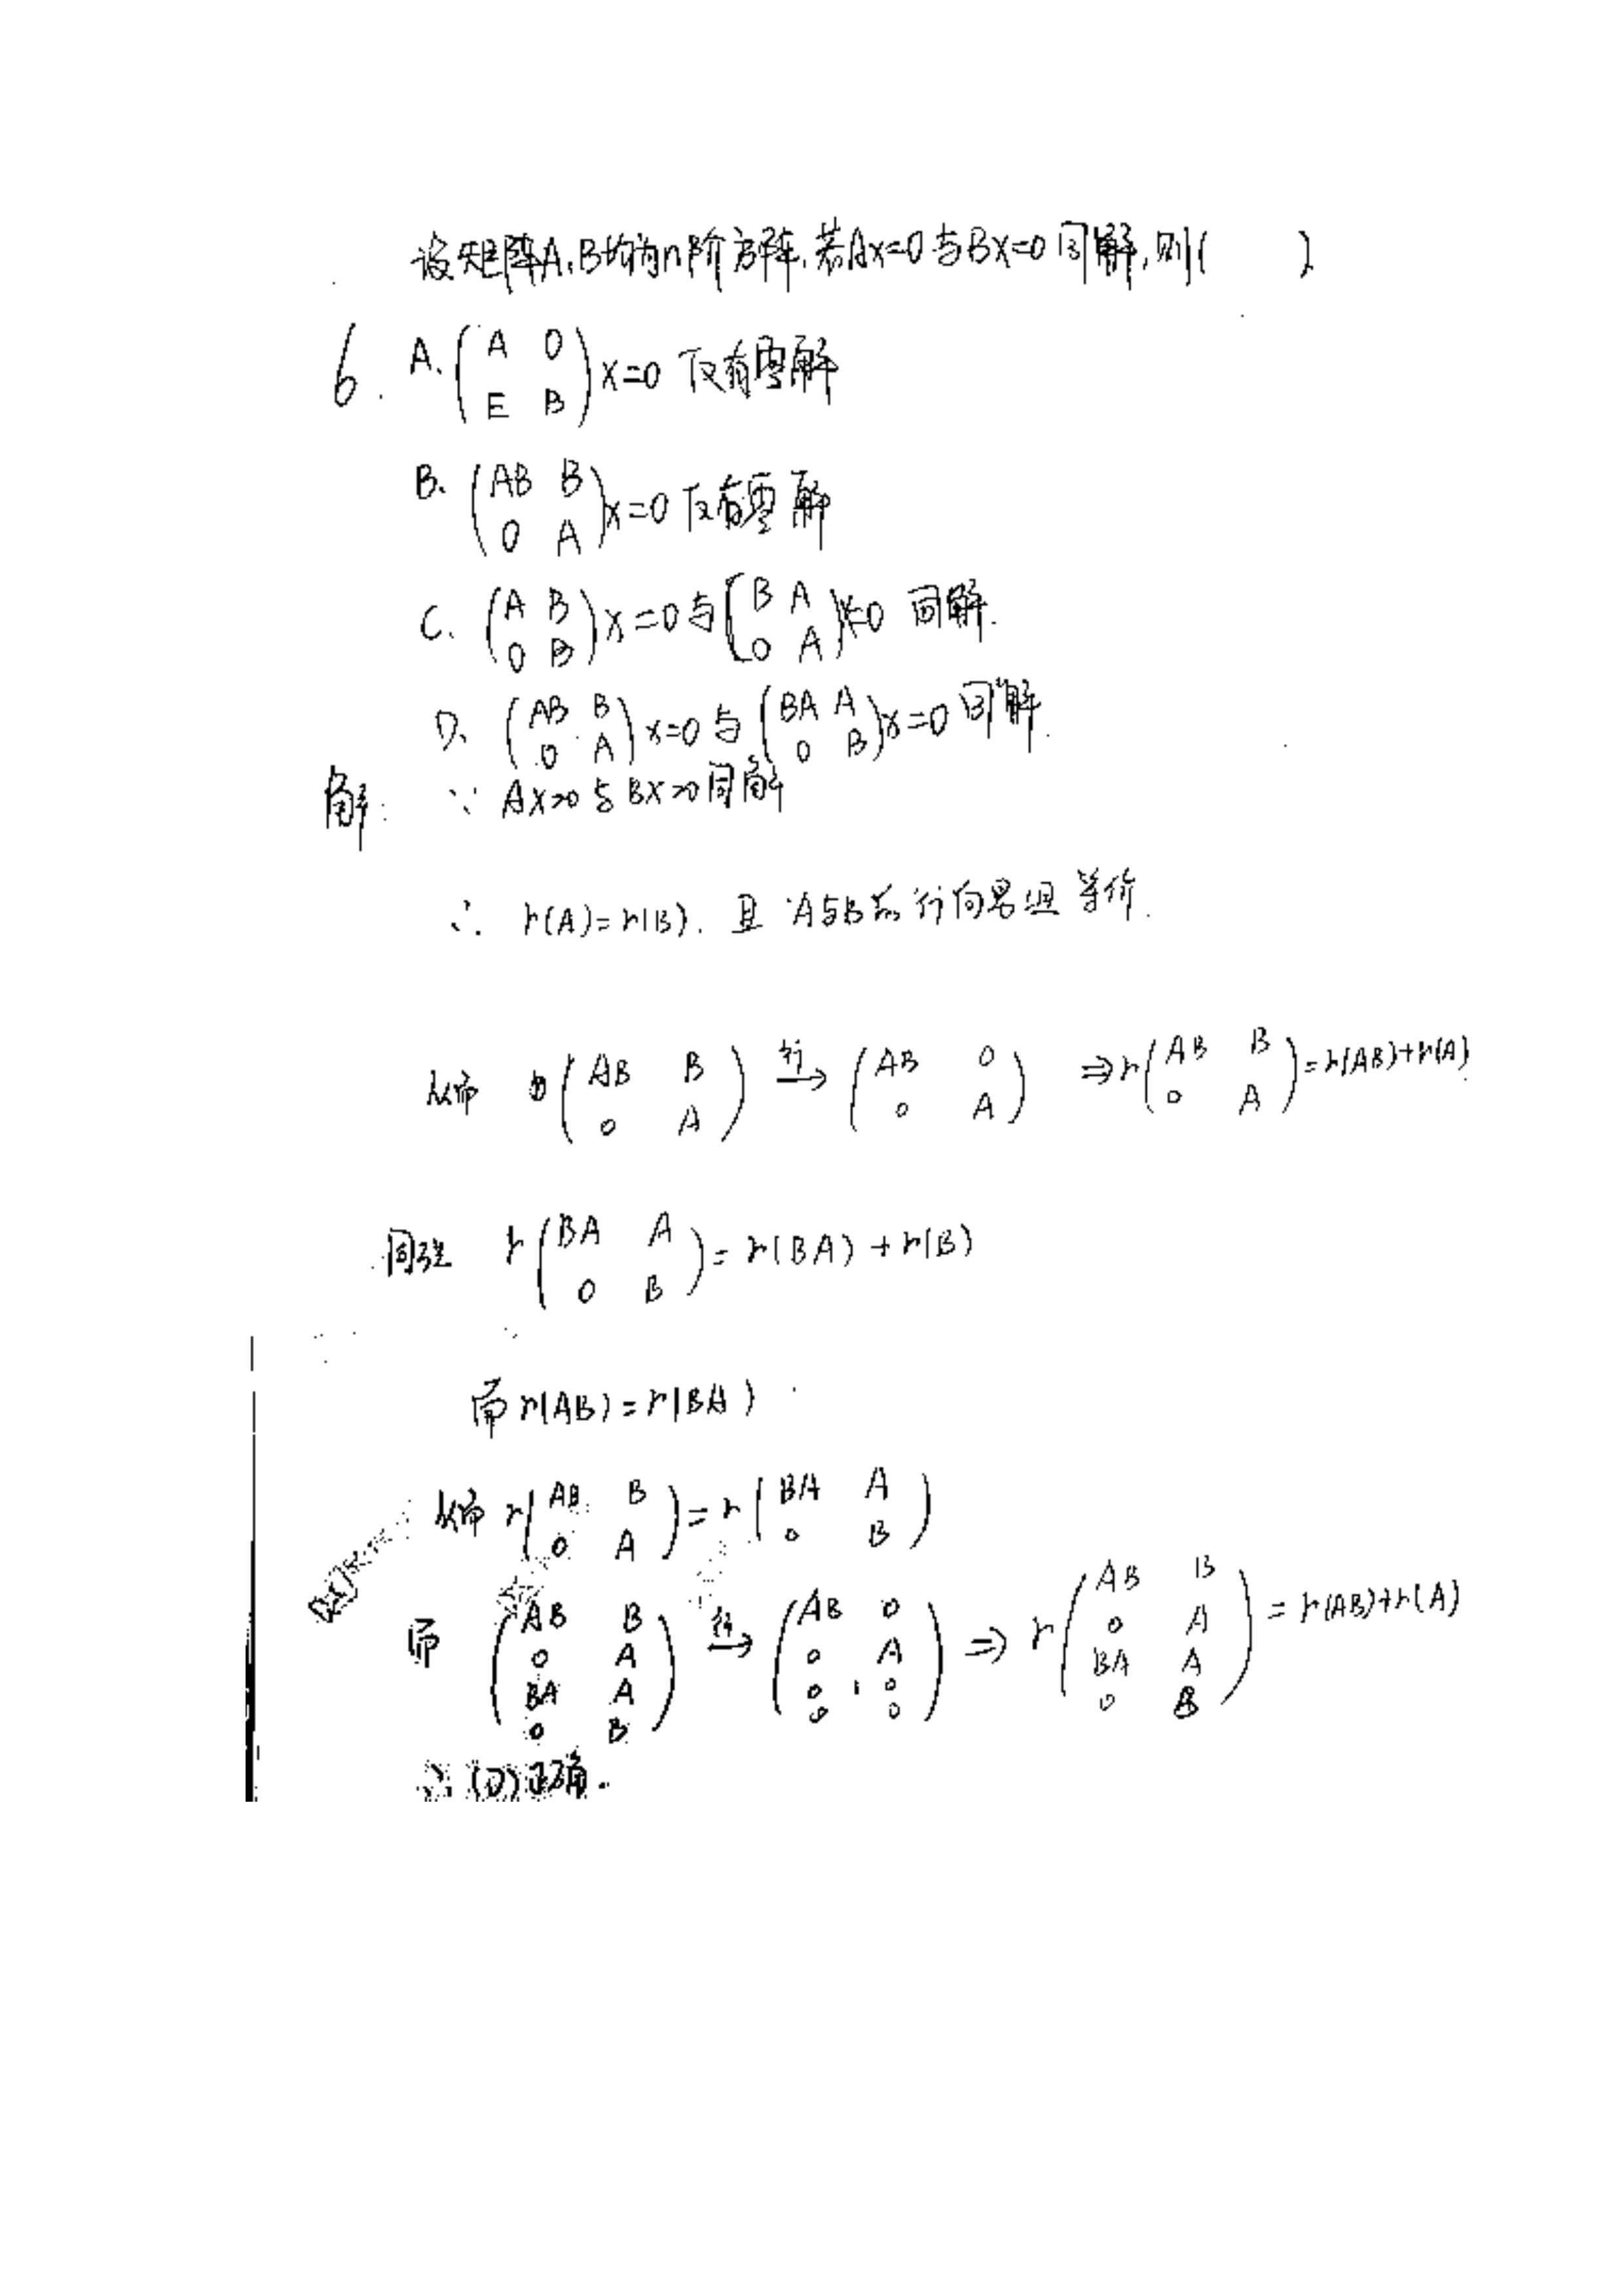 设矩阵A,B均为n阶方阵,若Ax=0与Bx=0同解,则( )
6. A. (A 0; E B) x=0 仅有零解
B. (AB B; 0 A) x=0 仅有零解
C. (A B; 0 B) x=0 与 (B A; 0 A) x=0 同解.
D. (AB B; 0 A) x=0 与 (BA A; 0 B) x=0 同解.
解: ∵ Ax=0 与 Bx=0 同解
∴ r(A)=r(B). 且 A与B的行向量组等价.
从而 (AB B; 0 A) 行→ (AB 0; 0 A) ⇒ r(AB B; 0 A) = r(AB)+r(A)
同理 r(BA A; 0 B) = r(BA)+r(B)
而 r(AB)=r(BA)
从而 r(AB B; 0 A) = r(BA A; 0 B)
而 (AB B; 0 A; BA A; 0 B) 行→ (AB 0; 0 A; 0 0; 0 0) ⇒ r(AB B; 0 A; BA A; 0 B) = r(AB)+r(A)
∴ (D)正确.